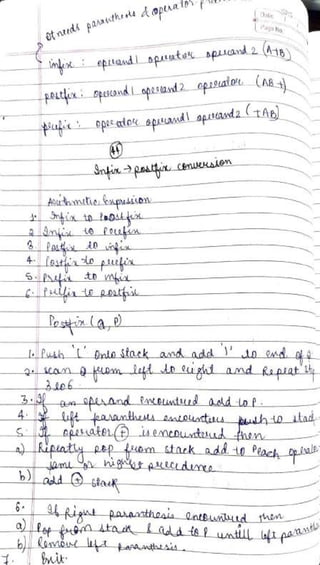 It needs paranthesis & operator
infix : operand1 operator operand 2 (A+B)
postfix : operand1 operand2 operator (AB+)
prefix : operator operand1 operand2 (+AB)
Infix → postfix conversion
Arithmetic Expression
1. Infix to Postfix
2. Infix to Prefix
3. Postfix to infix
4. Postfix to prefix
5. Prefix to infix
6. Prefix to postfix
Postfix (Q, P)
1. Push '(' onto stack and add ')' to end of Q
2. scan Q from left to right and Repeat
3 to 6.
3. If an operand encountered add to P.
4. If left paranthesis encounters push to stack
5. If operator (+) is encountered then
a) Repeatly pop from stack add to P each
same or highest precedence.
b) add (+) stack
6. If Right paranthesis encountered then
a) Pop from stack & add to P untill left
b) Remove left paranthesis.
7. Exit.